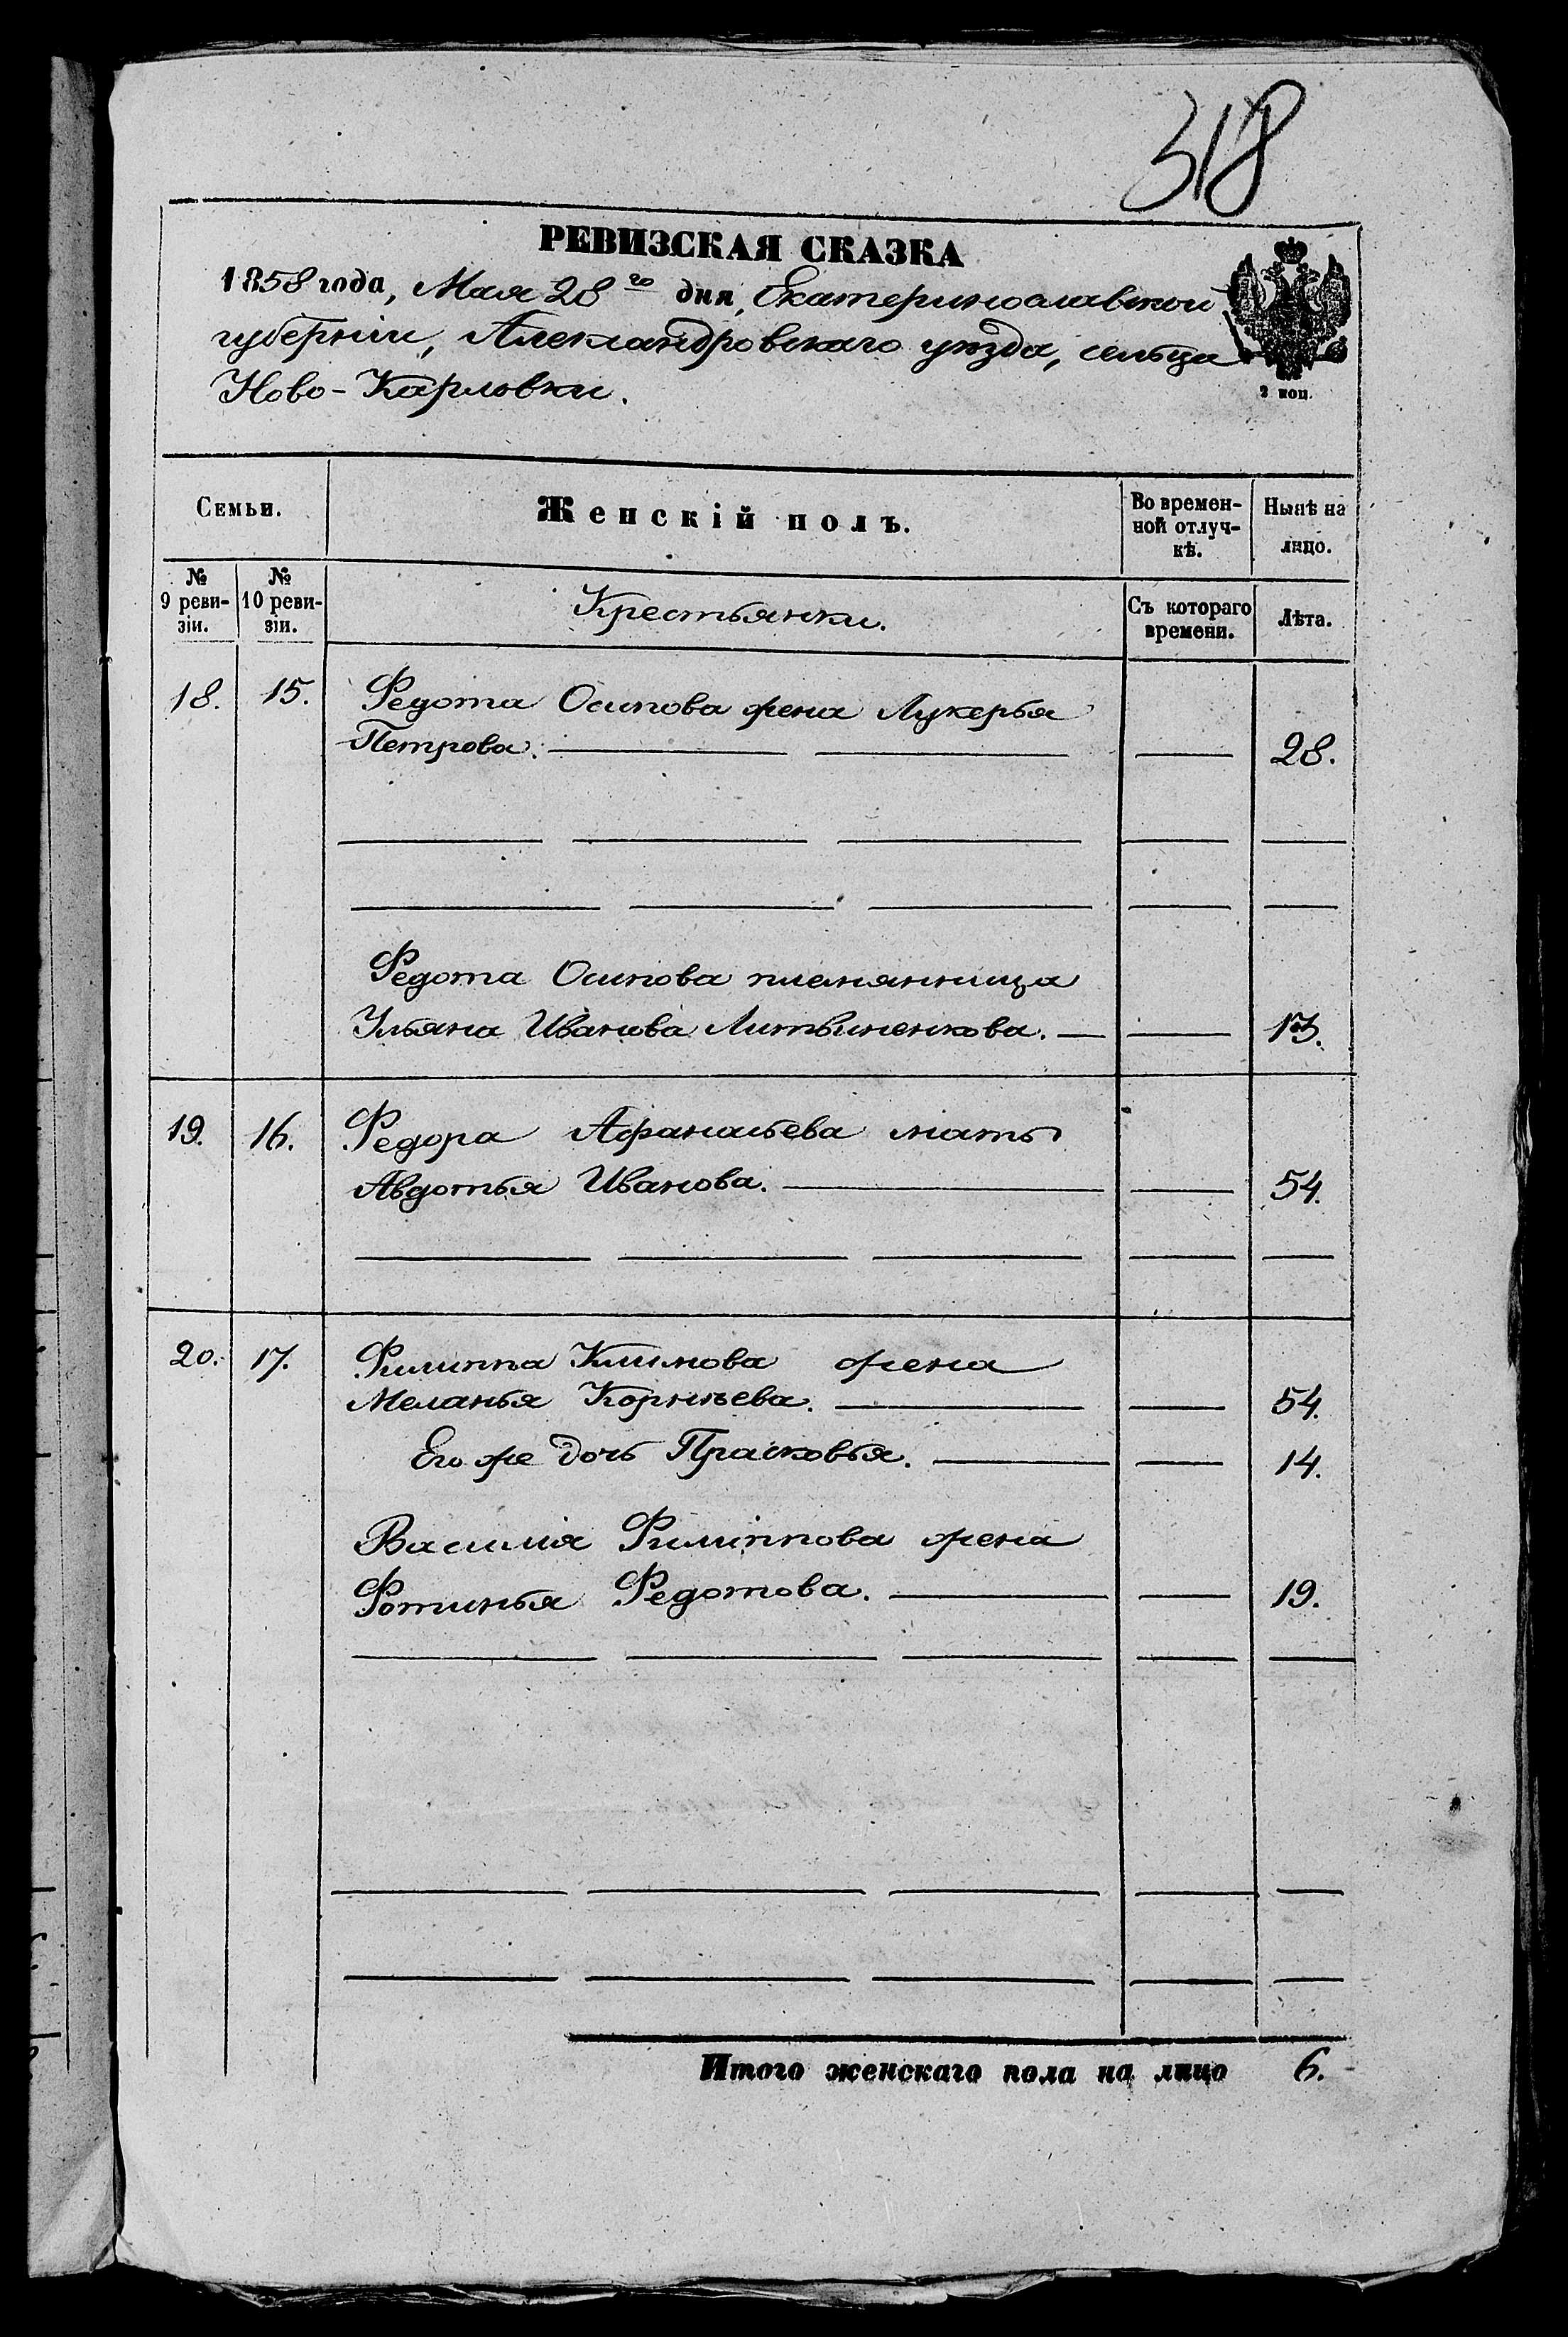 318
РЕВИЗСКАЯ СКАЗКА
1858 года, Мая 28го дня, Екатеринославской
губерніи, Александровскаго уѣзда, сельца
Ново-Карловки.
2 коп.
Семьи.
Женскій полъ.
Во времен-
ной отлуч-
кѣ.
Нынѣ на
лицо.
№
9 реви-
зіи.
№
10 реви-
зіи.
Крестьянки.
Съ котораго
времени.
Лѣта.
18. 15. Федота Осипова жена Лукерья
Петрова. — 28.
Федота Осипова племянница
Ульяна Иванова Литвиненкова. —
19. 16. Федора Афанасьева мать
Авдотья Иванова. — 54.
20. 17. Филиппа Климова жена
Меланья Корнѣева. — 54.
Его же дочь Прасковья. — 14.
Василія Филиппова жена
Фотинья Федотова. — 19.
Итого женскаго пола на лицо 6.